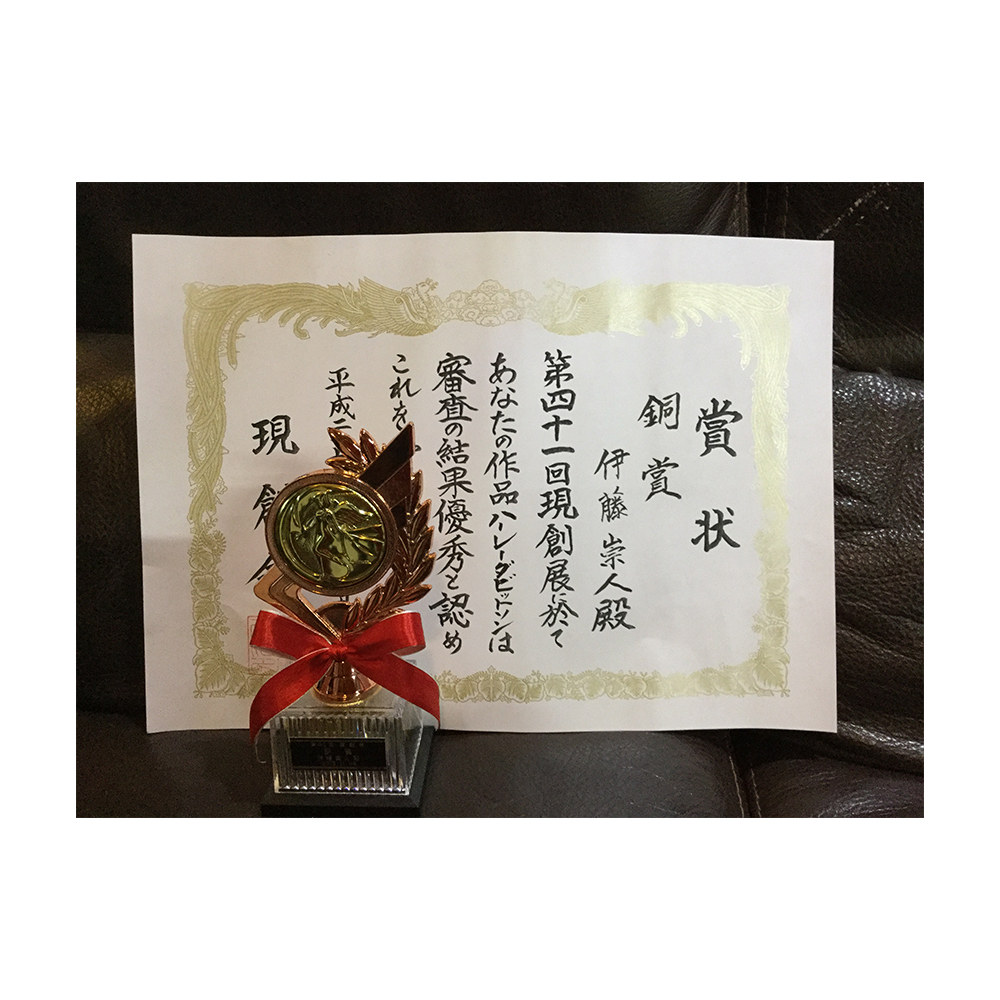 賞状
銅賞
伊藤崇人殿
第四十一回現創展に於て
あなたの作品ハーレーダビットソンは
審査の結果優秀と認め
これを
平成二
現創会